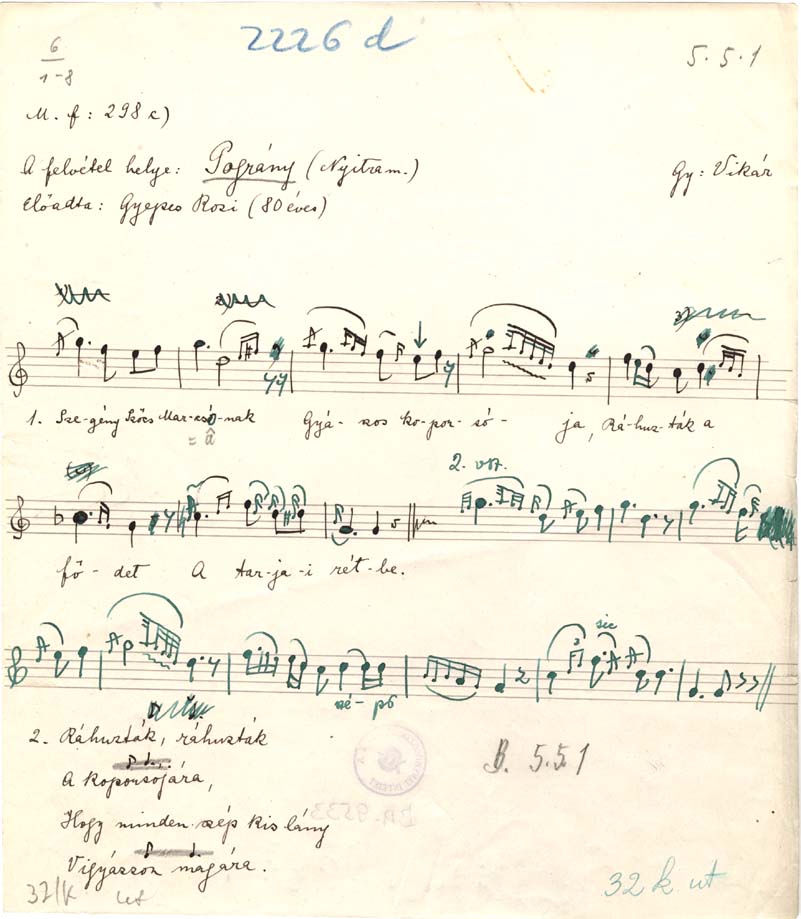 2226 d
6
1-8
5.5.1
M. f: 298 c)
A felvétel helye: Pográny (Nyitram.)
Gy: Vikár
Előadta: Gyepes Rozi (80 éves)
1. Sze-gény Szőcs Mar-csó-nak Gyá-szos ko-por-só- ja, Rá-huz-ták a
= â
2. vsz.
fö-det A tar-ja-i rét-be.
sic
szé-pö
2. Ráhuzták, ráhuzták
A koporsójára,
B. 5.5.1
Hogy minden szép kis lány
Vigyázzon magára.
32/k ut
32 k ut